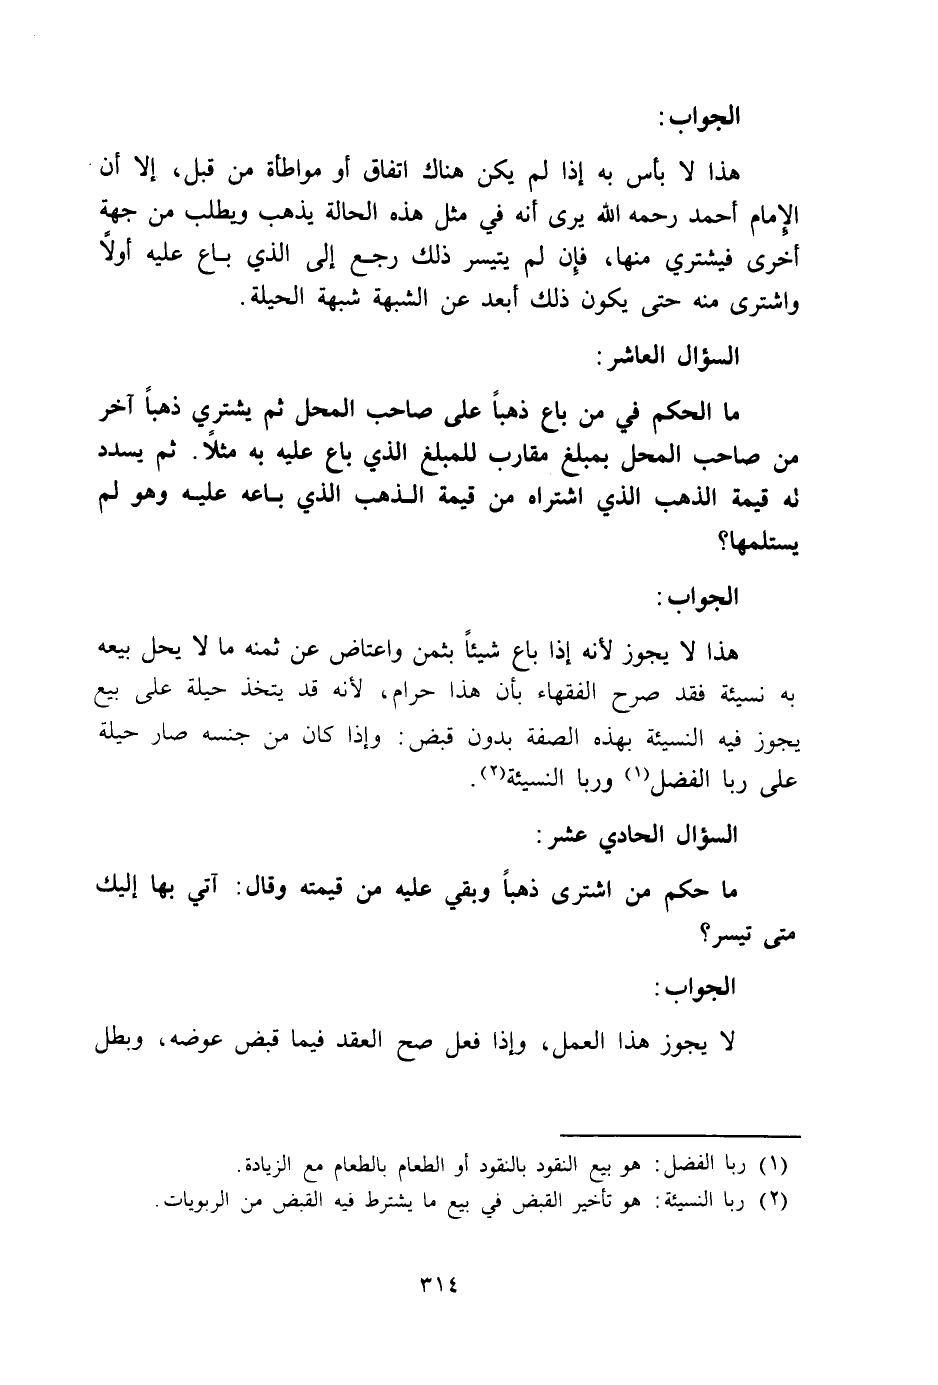 الجواب:
هذا لا بأس به إذا لم يكن هناك اتفاق أو مواطأة من قبل، إلا أن
الإمام أحمد رحمه الله يرى أنه في مثل هذه الحالة يذهب ويطلب من جهة
أخرى فيشتري منها، فإن لم يتيسر ذلك رجع إلى الذي باع عليه أولاً
واشترى منه حتى يكون ذلك أبعد عن الشبهة شبهة الحيلة.
السؤال العاشر:
ما الحكم في من باع ذهباً على صاحب المحل ثم يشتري ذهباً آخر
من صاحب المحل بمبلغ مقارب للمبلغ الذي باع عليه به مثلاً. ثم يسدد
له قيمة الذهب الذي اشتراه من قيمة الذهب الذي باعه عليه وهو لم
يستلمها؟
الجواب:
هذا لا يجوز لأنه إذا باع شيئاً بثمن واعتاض عن ثمنه ما لا يحل بيعه
به نسيئة فقد صرح الفقهاء بأن هذا حرام، لأنه قد يتخذ حيلة على بيع
يجوز فيه النسيئة بهذه الصفة بدون قبض: وإذا كان من جنسه صار حيلة
على ربا الفضل(١) وربا النسيئة(٢).
السؤال الحادي عشر:
ما حكم من اشترى ذهباً وبقي عليه من قيمته وقال: آتي بها إليك
متى تيسر؟
الجواب:
لا يجوز هذا العمل، وإذا فعل صح العقد فيما قبض عوضه، وبطل
(١) ربا الفضل: هو بيع النقود بالنقود أو الطعام بالطعام مع الزيادة.
(٢) ربا النسيئة: هو تأخير القبض في بيع ما يشترط فيه القبض من الربويات.
٣١٤